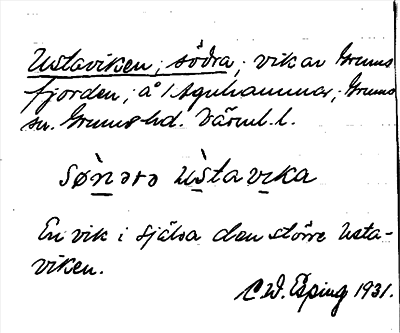 Ustaviken, södra, vik av Grums
fjorden, å 1 Agnhammar, Grums
sn. Grums hd. Värml. l.
Sø̀nərə ùstavika
En vik i själva den större Usta-
viken.
C.W. Esping 1931.